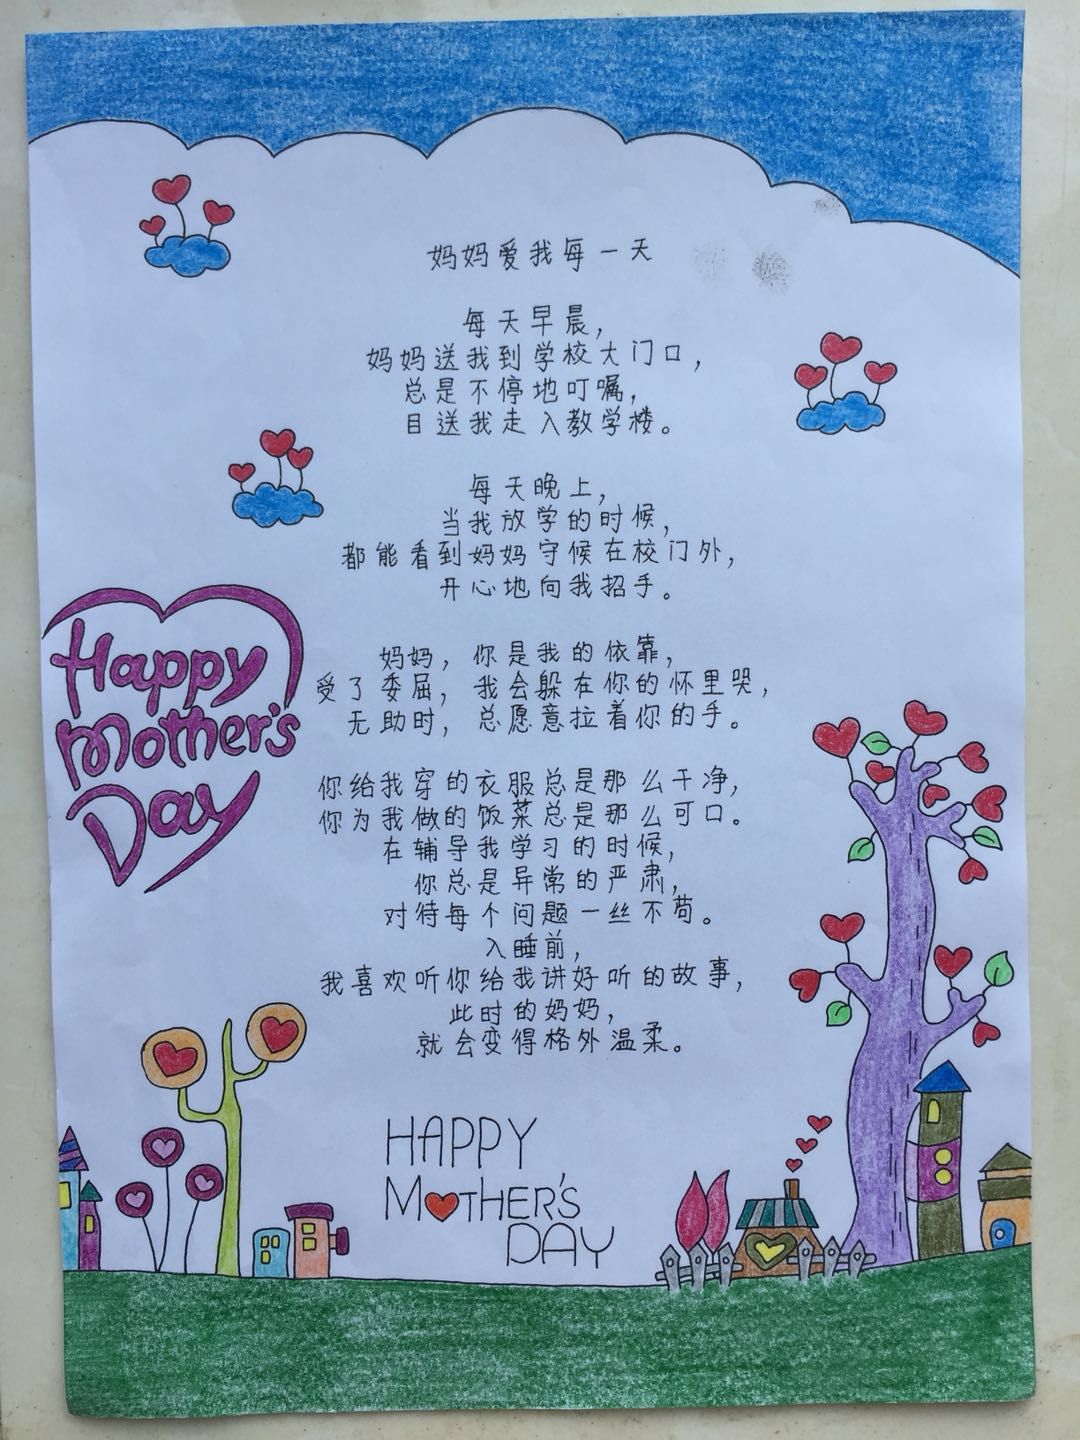 妈妈爱我每一天
每天早晨，
妈妈送我到学校大门口，
总是不停地叮嘱，
目送我走入教学楼。
每天晚上，
当我放学的时候，
都能看到妈妈守候在校门外，
开心地向我招手。
妈妈，你是我的依靠，
受了委屈，我会躲在你的怀里哭，
无助时，总愿意拉着你的手。
你给我穿的衣服总是那么干净，
你为我做的饭菜总是那么可口。
在辅导我学习的时候，
你总是异常的严肃，
对待每个问题一丝不苟。
入睡前，
我喜欢听你给我讲好听的故事，
此时的妈妈，
就会变得格外温柔。
Happy
Mother's
Day
HAPPY
MOTHER'S
DAY